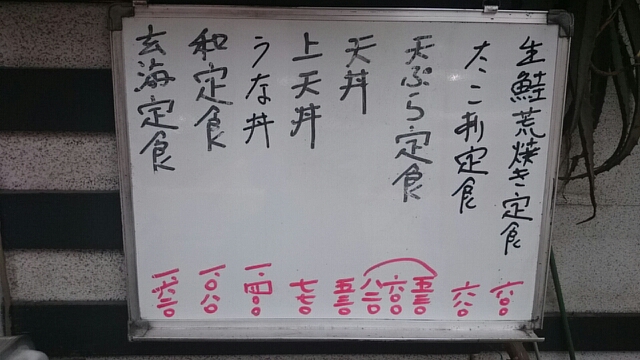 生鮭荒焼き定食 六〇〇
たこ刺定食 六八〇
天ぷら定食 五三〇 六〇〇 八三〇
天丼 五三〇
上天丼 七七〇
うな丼 一、四〇〇
和定食 一、〇八〇
玄海定食 一、六二〇